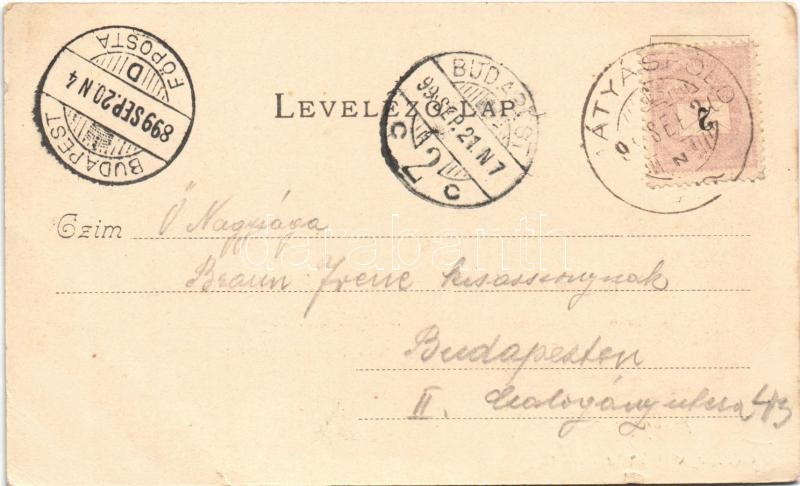 BUDAPEST
899 SEP. 20 N 4
D
FŐPOSTA
LEVELEZŐ-LAP
BUDAPEST
99 SEP. 21. N 7
7 C 2 C
MÁTYÁSFÖLD
2
Czim Ő Nagysága
Braun Irene kisasszonynak
Budapesten
II. utcza 43
darabanth